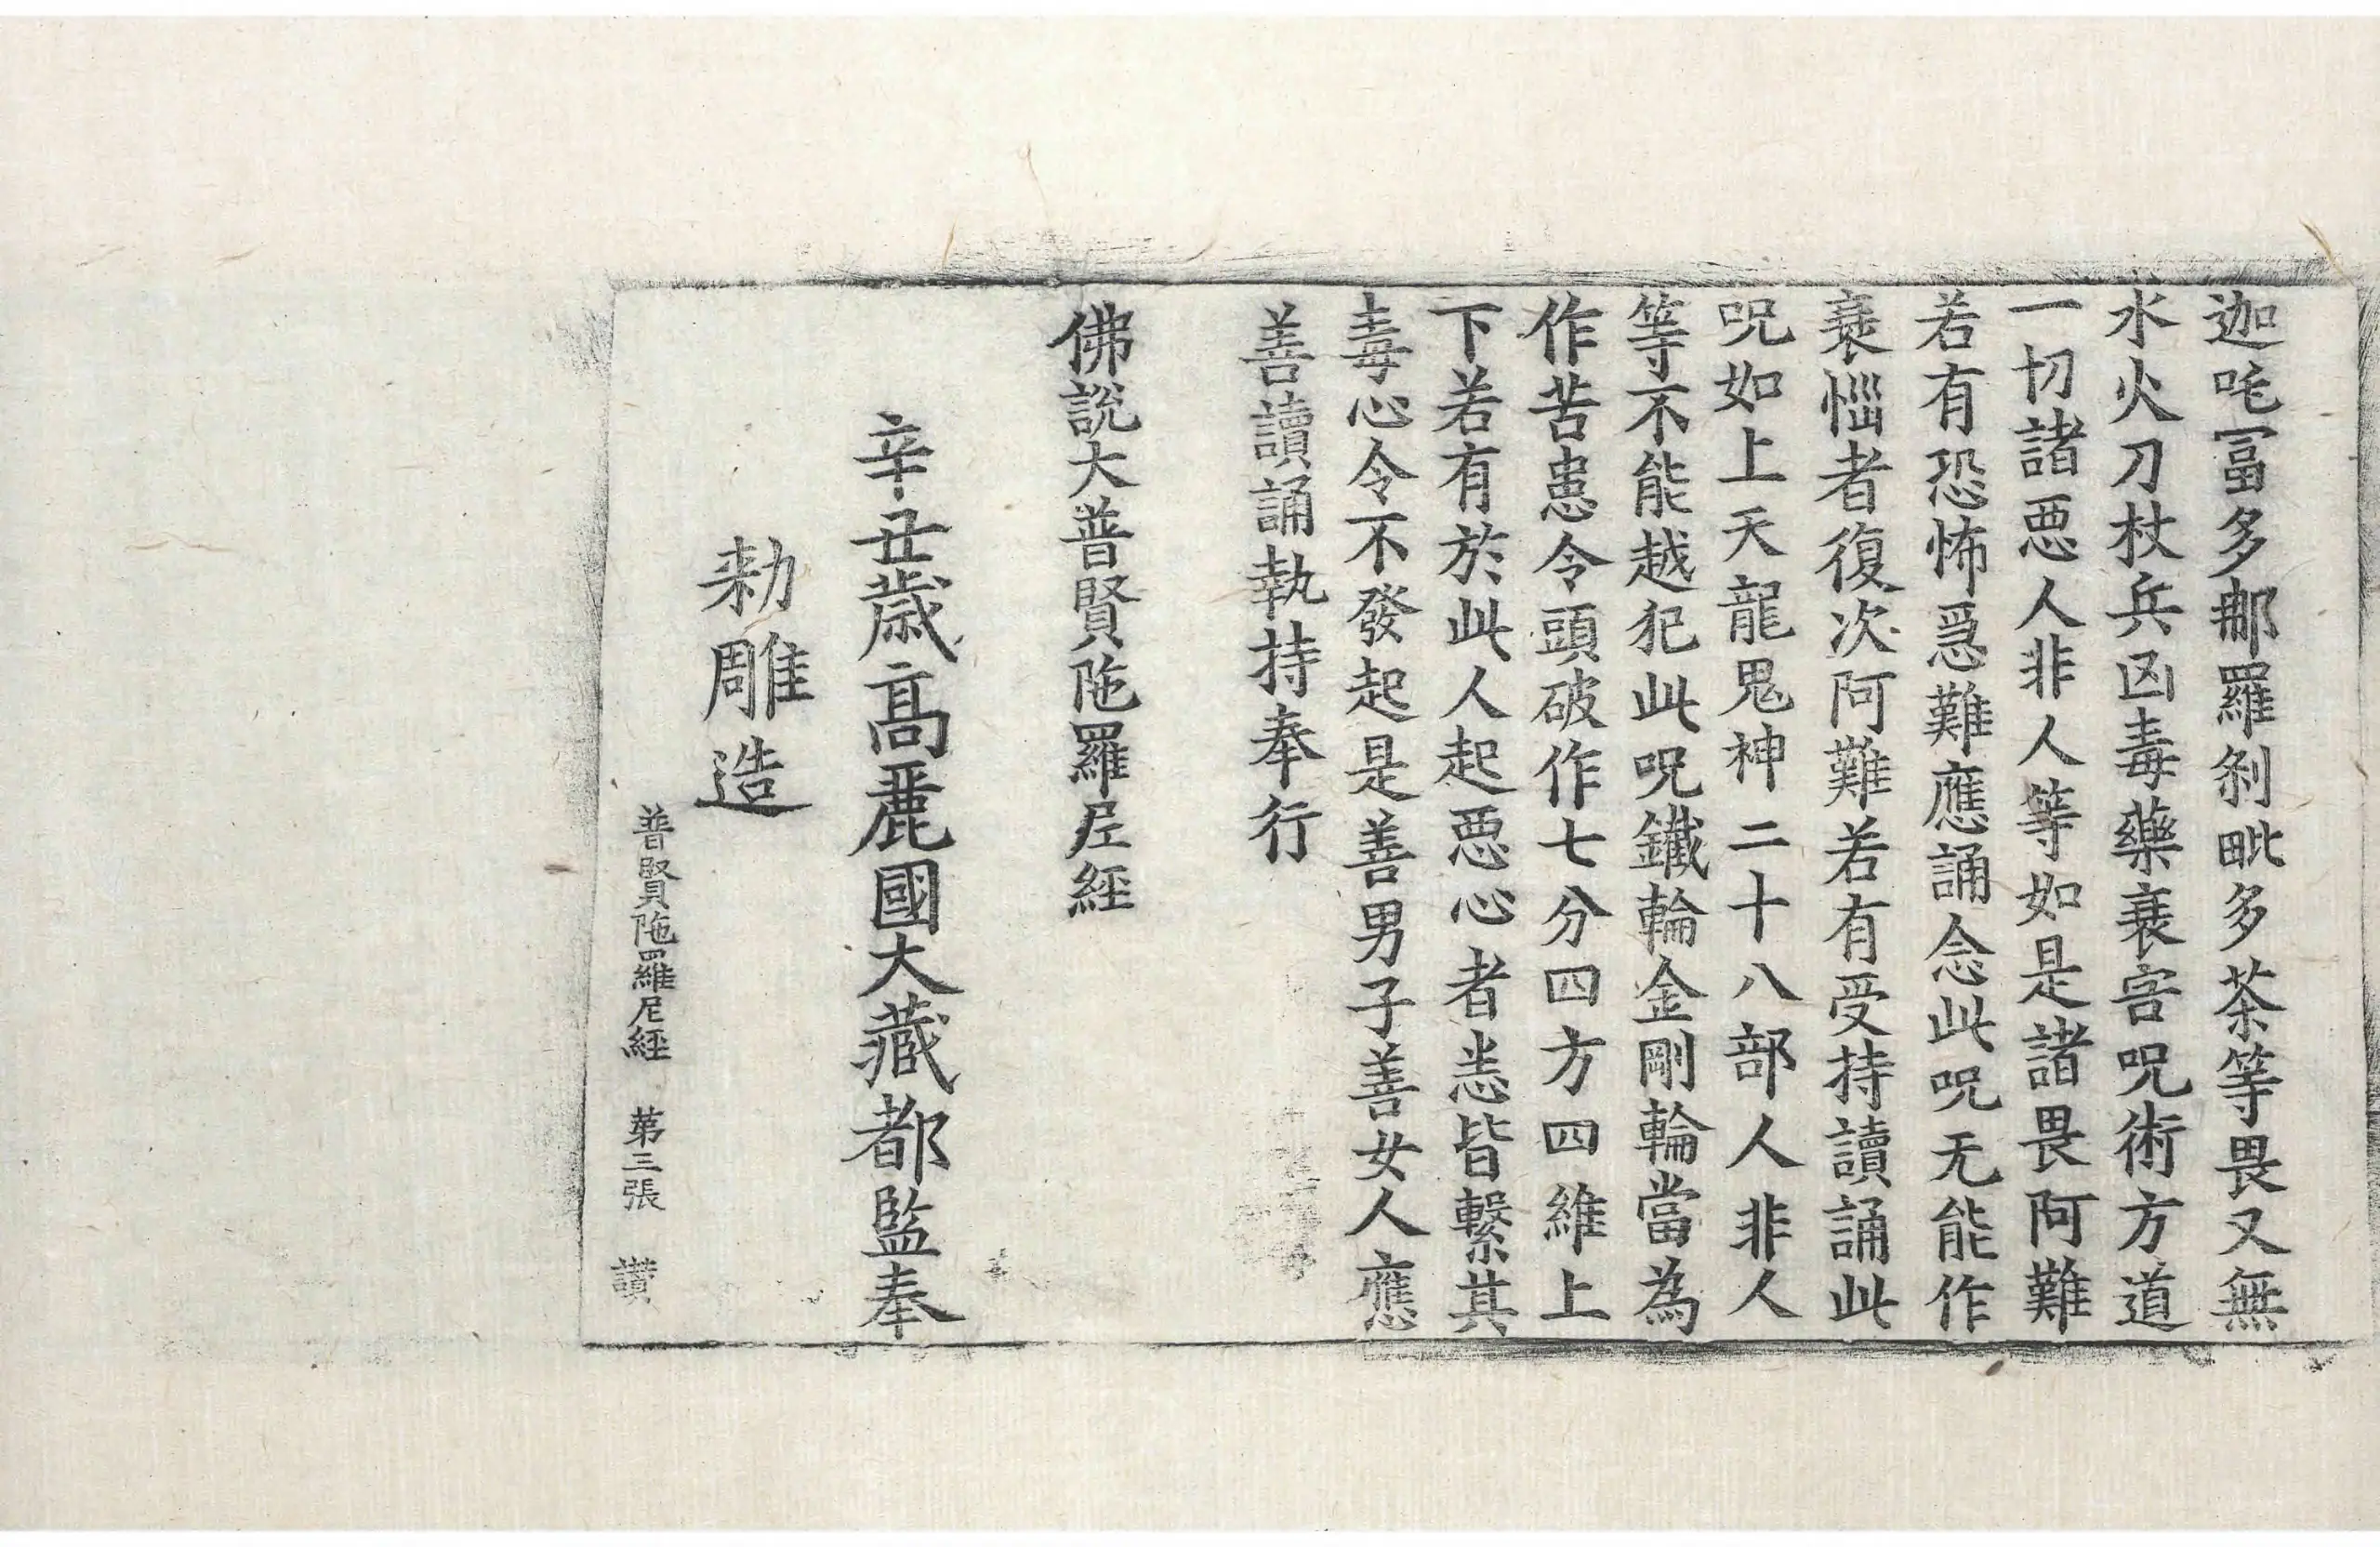 迦吒冨多那羅剎毗多茶等畏又無
水火刀杖兵凶毒藥衰害呪術方道
一切諸惡人非人等如是諸畏阿難
若有恐怖爲難應誦念此呪无能作
衰惱者復次阿難若有受持讀誦此
呪如上天龍鬼神二十八部人非人
等不能越犯此呪鐵輪金剛輪當為
作苦患令頭破作七分四方四維上
下若有於此人起惡心者恙皆繫其
毒心令不發起是善男子善女人應
善讀誦執持奉行
佛說大普賢陁羅尼經
辛丑歳高麗國大藏都監奉
勑雕造
普賢陁羅尼經 第三張 讃